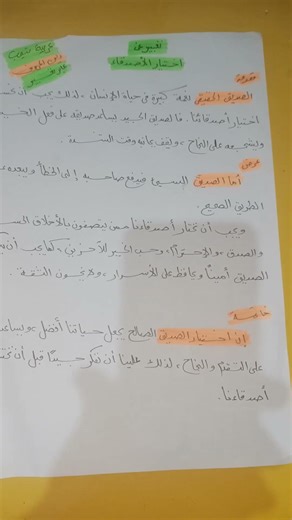 تعبير عن
اختيار الأصدقاء
مقدمة
الصديق الحقيقي نعمة كبيرة في حياة الإنسان، لذلك يجب أن
اختيار أصدقائنا. فالصديق الجيد يساعد صديقه على فعل
ويشجعه على النجاح، ويقف بجانبه وقت الشدة.
عرض
أما الصديق السيئ فيدفع صاحبه إلى الخطأ ويبعده
الطريق الصحيح.
ويجب أن نختار أصدقاءنا ممن يتصفون بالأخلاق
والصدق، والاحترام، وحب الخير للآخرين، كما يجب أن
الصديق أمينًا ويحافظ على الأسرار، ولا يخون الثقة.
خاتمة
إن اختيار الصديق الصالح يجعل حياتنا أفضل، ويساعد
على التقدم والنجاح، لذلك علينا أن نفكر جيدًا قبل أن
أصدقاءنا.